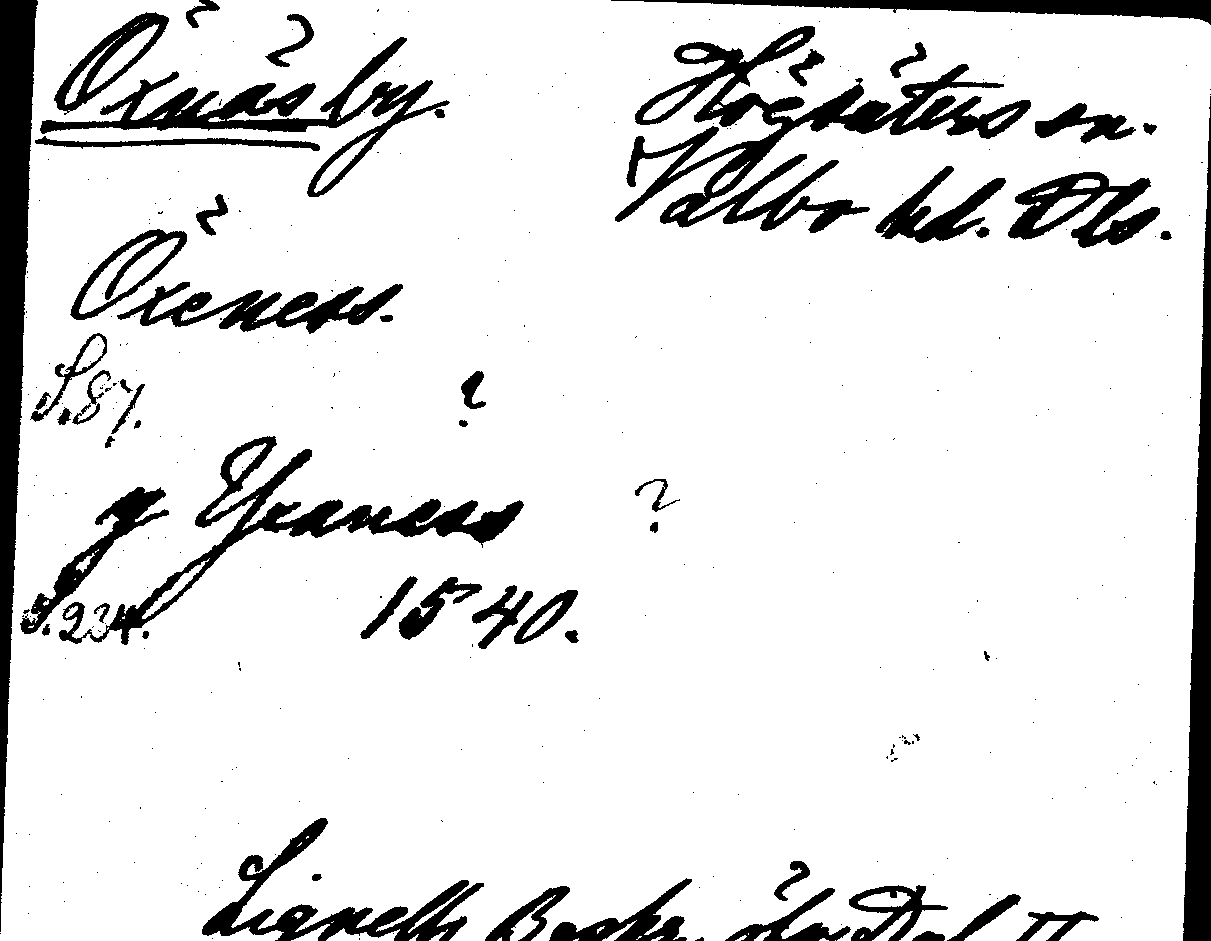 Öxnäsby.
Högsäters sn.
Valbo hd. Dls.
Öxeness.
S.87.
?
y Yxaness ?
S.234. 1540.
Lignells Beskr. över Dal II